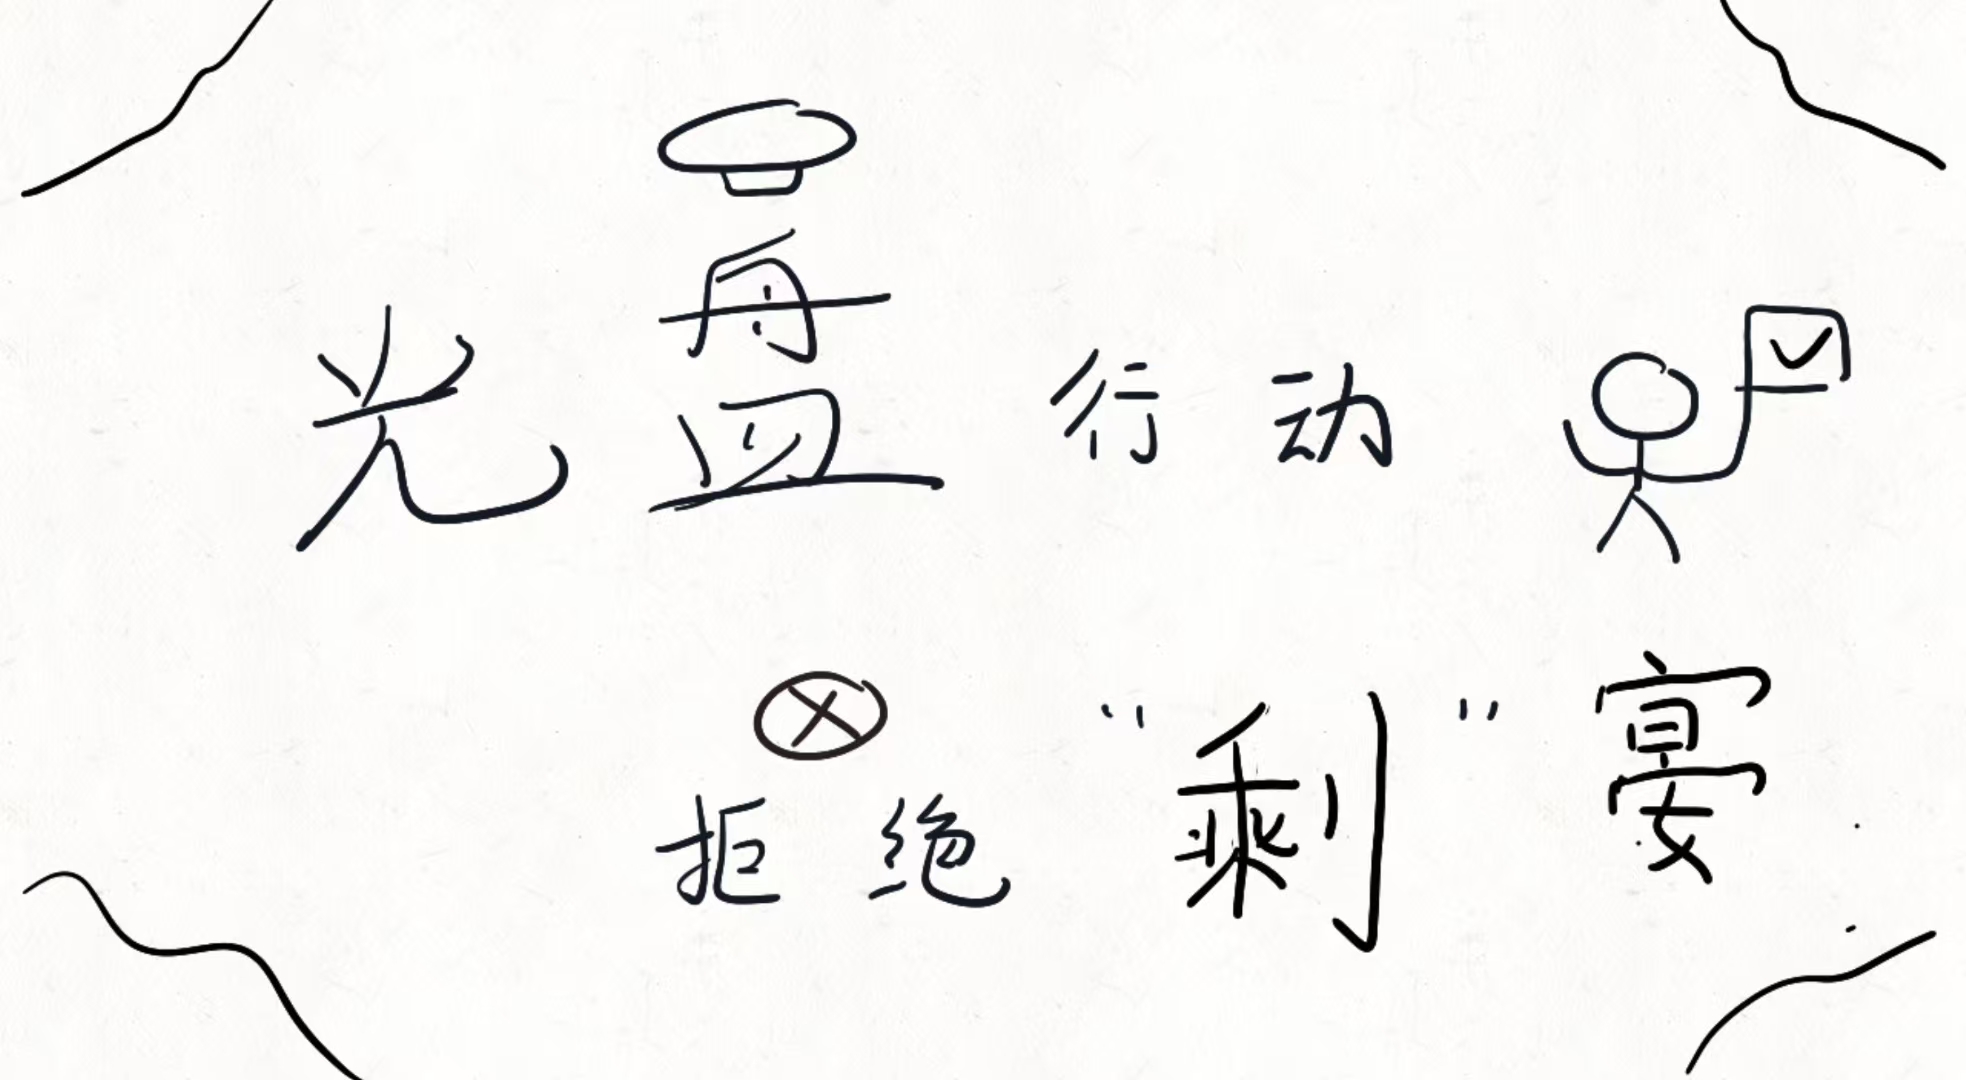 光盘行动
拒绝“剩”宴